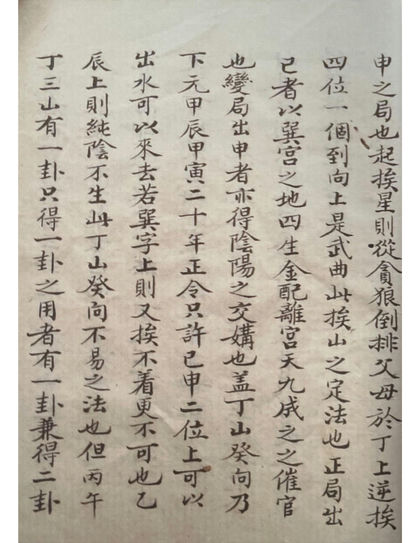 申之局也起挨星則從貪狼倒排父母於丁上逆挨
四位一個到向上是武曲此挨山之定法也正局出
已者以巽宫之地四生金配離宫天九成之之催官
也變局出申者亦得陰陽之交媾也盖丁山癸向乃
下元甲辰甲寅二十年正令只許已申二位上可以
出水可以來去若巽字上則又挨不着更不可也乙
辰上則純陰不生此丁山癸向不易之法也但丙午
丁三山有一卦只得一卦之用者有一卦兼得二卦